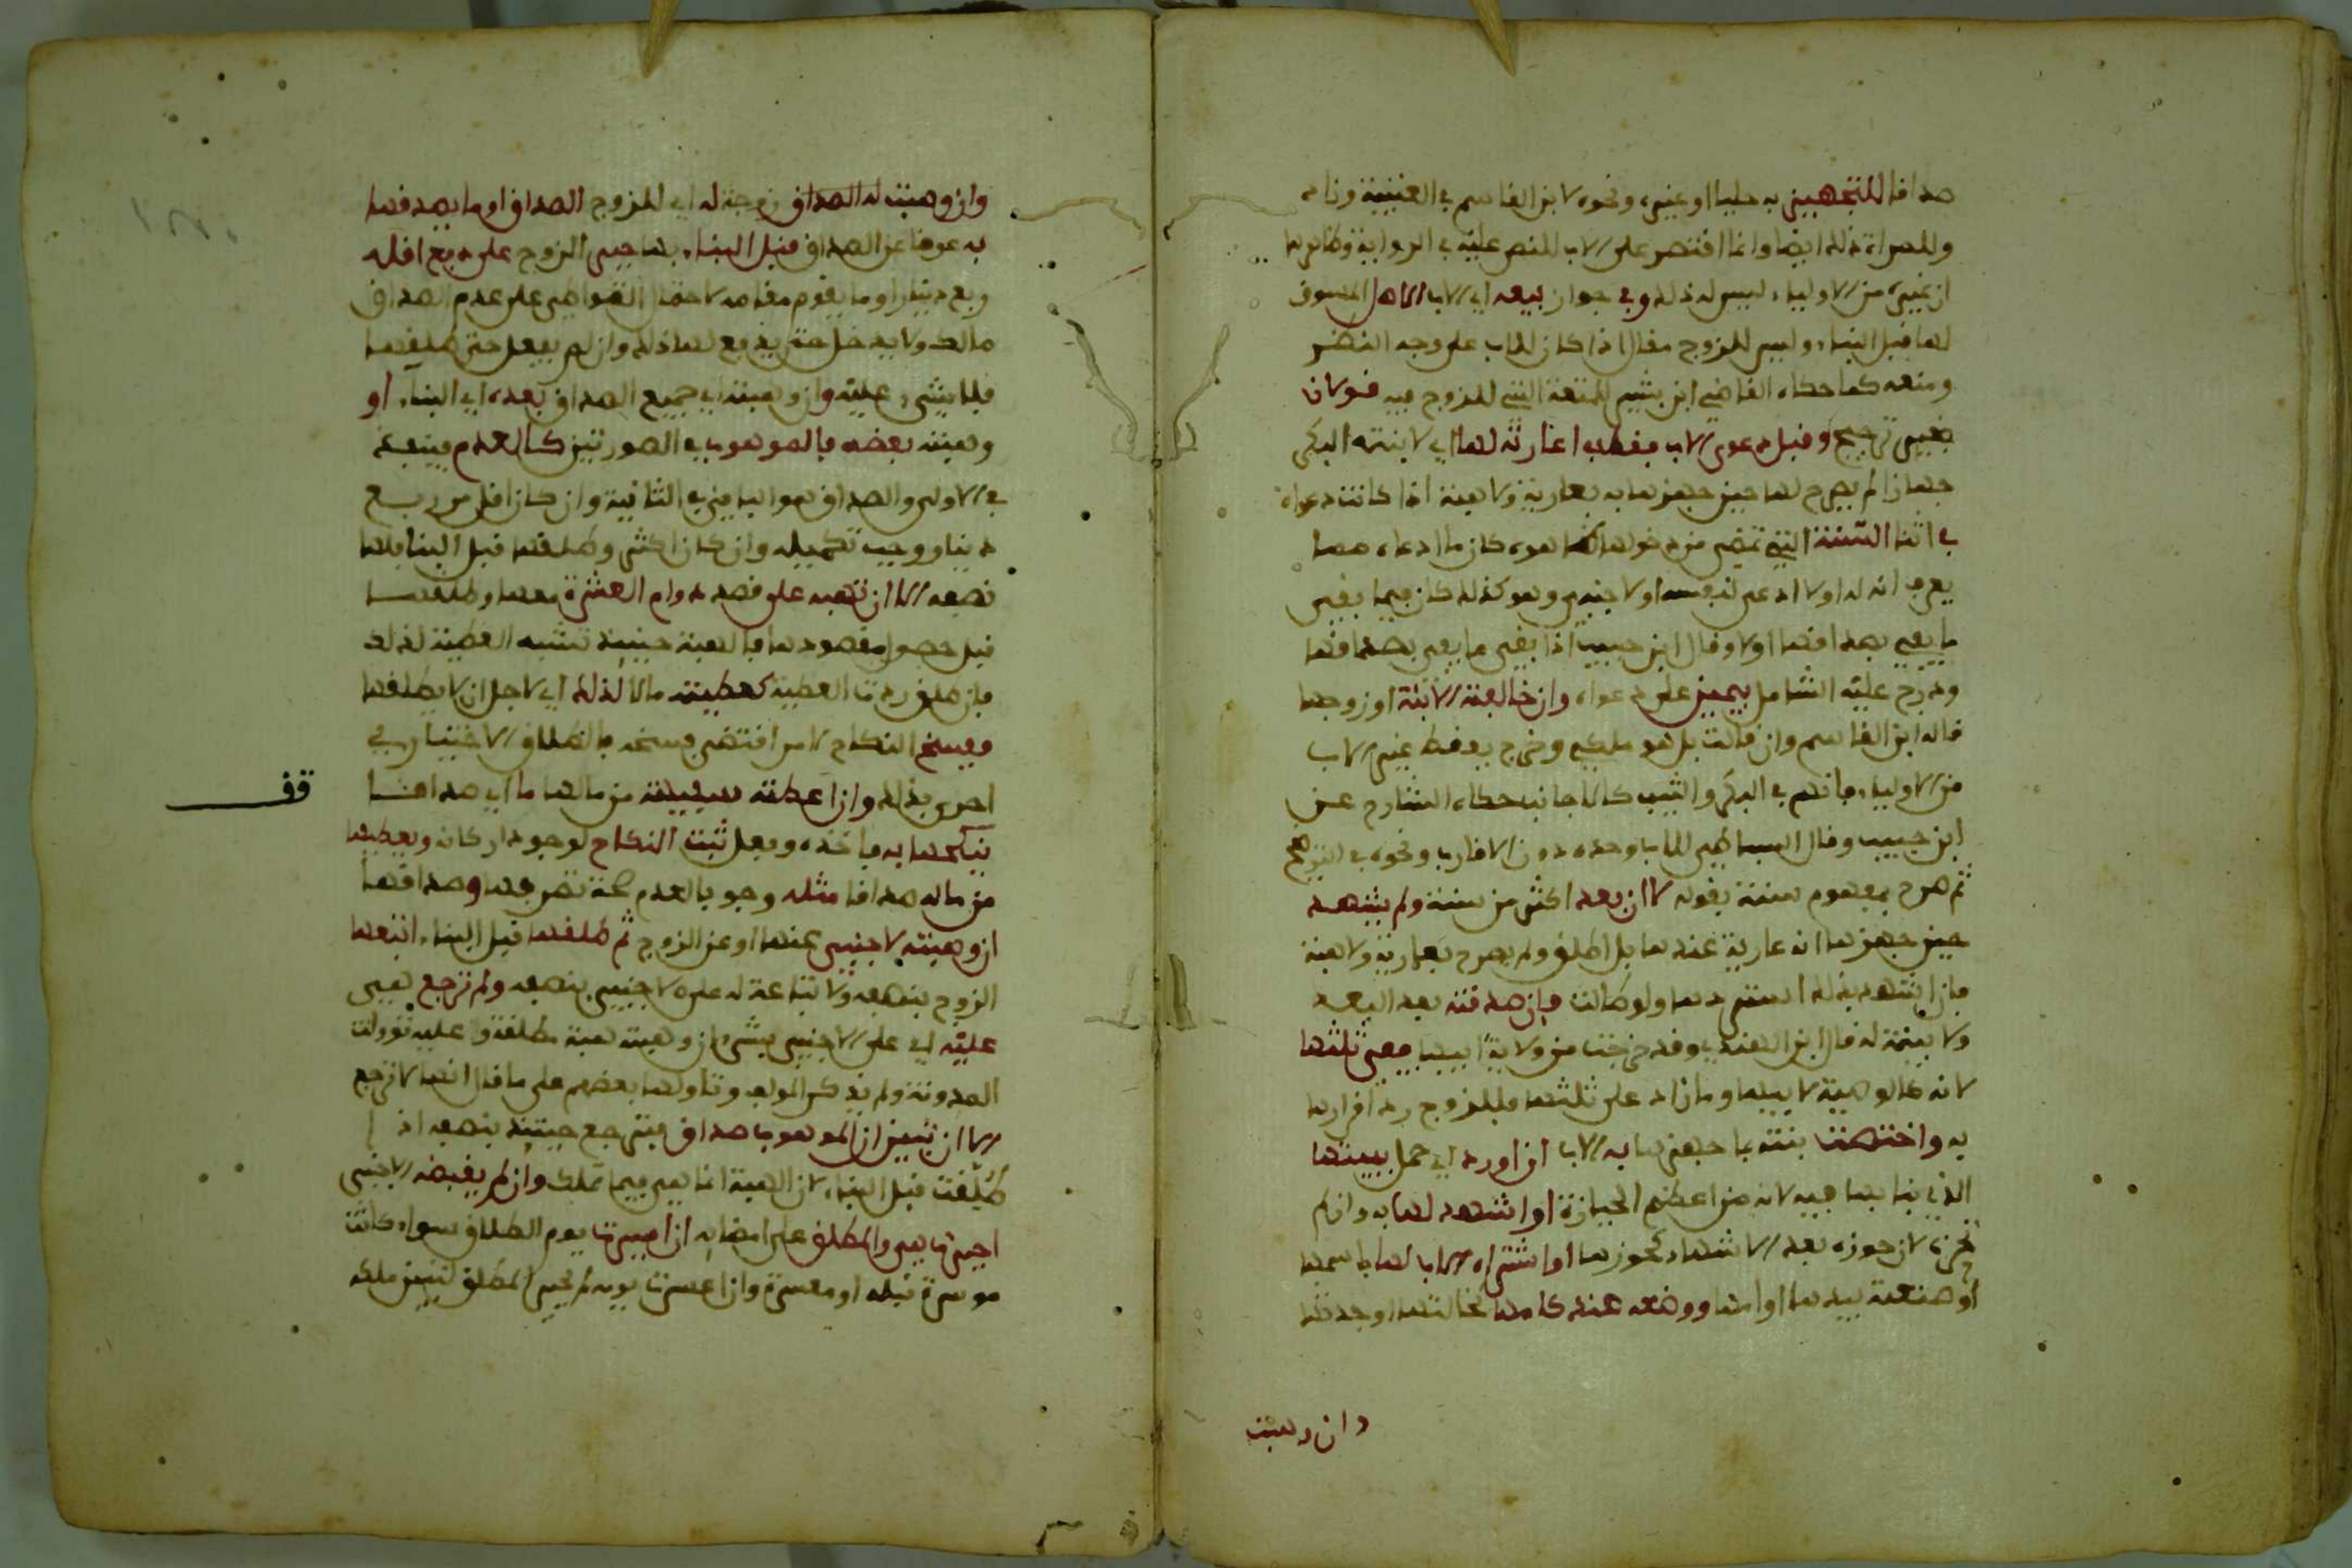 صداقا للتجهيز به حليا او غيره ونحوه لابن القاسم في العتبية وناد
وللمراة ذلك ايضا وانما اقتصر على الاب للنص عليه في الرواية وظاهرها
ان غيره من الاولياء ليس له ذلك وفي جواز بيعه اي الاب الاصل المسوق
لها قبل البناء وليس للزوج مقال اذا كان للاب على وجه النضر
ومنعه كما حكاه القاضي ابن بشير للمتعة التي للزوج فيه قولان
بغير ترجيح وقبل دعوى الاب فقط في اعارته لها اي لابنته البكر
جهازا لم يصرح لها حين جهزها به بعارية ولا هبة اذا كانت دعواه
في اثناء السنة التي تمضي من دخولها كان ما ادعاه مما
يعرف انه له اولا ادعى لنفسه او لاجنبي وهو كذلك كان فيما بقي
ما يفي بصداقها اولا وقال ابن حبيب اذا بقي ما يفي بصداقها
ودرج عليه الشامل بيمين على دعواه وان خالفته الابنة او زوجها
قاله ابن القاسم وان قالت بل هو ملكي وخرج بقط غير الاب
من الاولياء فانهم في البكر والثيب كالاجانب حكاه الشارح عن
ابن حبيب وقال البساطي للاب وحده دون الاقارب ونحوه في
ثم صرح بمفهوم سنة بقوله لا ان بعد اكثر من سنة ولم يشهد
حين جهزها انه عارية عندها بل اطلق ولم يصرح بعارية ولا هبة
فان اشهد بذلك استردها ولو طالت فان صدقته بعد البعد
ولا بينة له قال ابن الهندي وقد خرجت من ولاية ابيها ففي ثلثها
لانه كالوهبة لابيها وما زاد على ثلثها فللزوج رد اقرارها
به واختصت بنته بما جهزها به الاب ان اورد اي حمل ببيتها
الذي بنا بها فيه لانه من اعظم الحيازة او اشهد لها به وان لم
تحزه لان حوزه بعد الاشهاد كحوزها او اشتراه الاب لها باسمها
او صنعته بيدها او امها ووضعه عند كامها كخالتها او جدتها
وان وهبت
وان وهبت له الصداق زوجة له اي للزوج الصداق او ما يصدقها
به عوضا عن الصداق قبل البناء بها جبر الزوج على دفع اقله
ربع دينار او ما يقوم مقامه لاحتمال التواطي على عدم الصداق
مالك ولا يدخل حتى يدفع لها ذلك وان لم يفعل حتى طلقها
فلا شيء عليه وان وهبته اي جميع الصداق بعده اي البناء او
وهبته بعضه فالموهوب في الصورتين كالعدم فينفذ
في الاولى والصداق هو الباقي في الثانية وان كان اقل من ربع
دينار وجب تكميله وان كان اكثر وطلقها قبل البناء فلها
نصفه الا ان تهبه على قصد دوام العشرة معها وطلقها
قبل حصول مقصودها فالهبة حينئذ تشبه العطية لذلك
فان طلق ردت العطية كعطيته مالا لذلك اي لاجل ان لا يطلقها
ففسخ النكاح لامر اقتضى فسخه فالطلاق الاختياري
احرى بذلك وان اعطته سفيهة من مالها ما اي صداقا
ينكحها به فاخذه وفعل ثبت النكاح لوجود اركانه ويعطيها
من ماله صداقا مثله وجوبا لعدم صحة تصرفها وصداقها
ان وهبته لاجنبي عنها او عن الزوج ثم طلقها قبل البناء اتبعها
الزوج بنصفه ولا تباعة له على الاجنبي بنصفه ولم ترجع هي
عليه اي على الاجنبي بشيء ان وهبته هبة مطلقة وعليه تؤولت
المدونة ولم يذكر المؤلف وتاولها بعضهم على ما قال انها لا ترجع
الا ان تبين ان الموهوب صداق فترجع حينئذ بنصفه اذا
طلقت قبل البناء لان الهبة انما هي فيما تملك وان لم يقبضه الاجنبي
اجبرت هي والمطلق على امضايه ان ايسرت يوم الطلاق سواء كانت
موسرة قبله او معسرة وان اعسرت يومه لم يجبر المطلق لتبين ملكه
قف